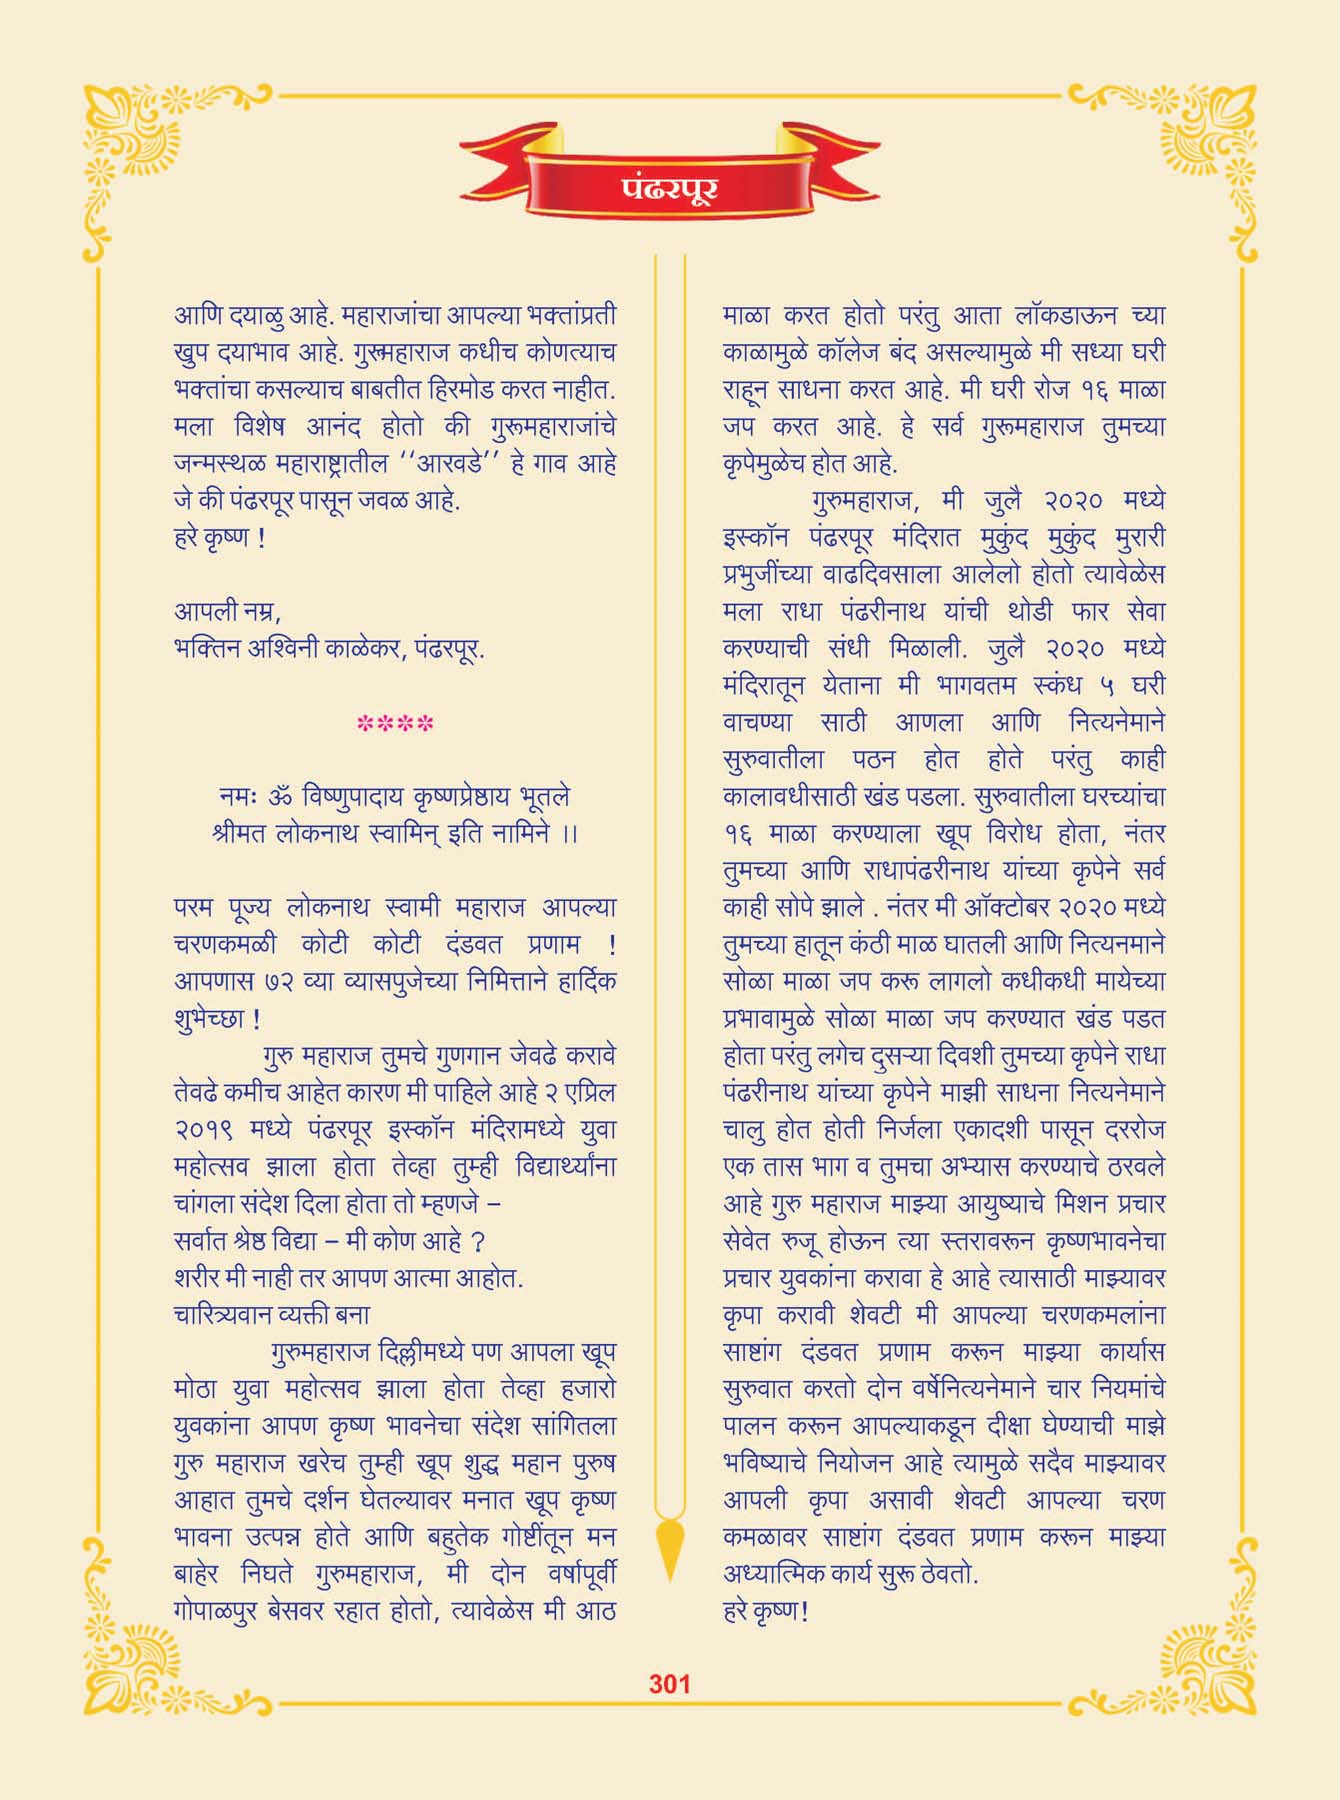 पंढरपूर
आणि दयाळु आहे. महाराजांचा आपल्या भक्तांप्रती
खुप दयाभाव आहे. गुरूमहाराज कधीच कोणत्याच
भक्तांचा कसल्याच बाबतीत हिरमोड करत नाहीत.
मला विशेष आनंद होतो की गुरूमहाराजांचे
जन्मस्थळ महाराष्ट्रातील ‘‘आरवडे’’ हे गाव आहे
जे की पंढरपूर पासून जवळ आहे.
हरे कृष्ण !
आपली नम्र,
भक्तिन अश्विनी काळेकर, पंढरपूर.
****
नमः ॐ विष्णुपादाय कृष्णप्रेष्ठाय भूतले
श्रीमत लोकनाथ स्वामिन् इति नामिने ।।
परम पूज्य लोकनाथ स्वामी महाराज आपल्या
चरणकमळी कोटी कोटी दंडवत प्रणाम !
आपणास ७२ व्या व्यासपुजेच्या निमित्ताने हार्दिक
शुभेच्छा !
गुरु महाराज तुमचे गुणगान जेवढे करावे
तेवढे कमीच आहेत कारण मी पाहिले आहे २ एप्रिल
२०१९ मध्ये पंढरपूर इस्कॉन मंदिरामध्ये युवा
महोत्सव झाला होता तेव्हा तुम्ही विद्यार्थ्यांना
चांगला संदेश दिला होता तो म्हणजे –
सर्वात श्रेष्ठ विद्या – मी कोण आहे ?
शरीर मी नाही तर आपण आत्मा आहोत.
चारित्र्यवान व्यक्ती बना
गुरुमहाराज दिल्लीमध्ये पण आपला खूप
मोठा युवा महोत्सव झाला होता तेव्हा हजारो
युवकांना आपण कृष्ण भावनेचा संदेश सांगितला
गुरु महाराज खरेच तुम्ही खूप शुद्ध महान पुरुष
आहात तुमचे दर्शन घेतल्यावर मनात खूप कृष्ण
भावना उत्पन्न होते आणि बहुतेक गोष्टींतून मन
बाहेर निघते गुरुमहाराज, मी दोन वर्षापूर्वी
गोपाळपुर बेसवर रहात होतो, त्यावेळेस मी आठ
माळा करत होतो परंतु आता लॉकडाऊन च्या
काळामुळे कॉलेज बंद असल्यामुळे मी सध्या घरी
राहून साधना करत आहे. मी घरी रोज १६ माळा
जप करत आहे. हे सर्व गुरूमहाराज तुमच्या
कृपेमुळेच होत आहे.
गुरुमहाराज, मी जुलै २०२० मध्ये
इस्कॉन पंढरपूर मंदिरात मुकुंद मुकुंद मुरारी
प्रभुजींच्या वाढदिवसाला आलेलो होतो त्यावेळेस
मला राधा पंढरीनाथ यांची थोडी फार सेवा
करण्याची संधी मिळाली. जुलै २०२० मध्ये
मंदिरातून येताना मी भागवतम स्कंध ५ घरी
वाचण्या साठी आणला आणि नित्यनेमाने
सुरुवातीला पठन होत होते परंतु काही
कालावधीसाठी खंड पडला. सुरुवातीला घरच्यांचा
१६ माळा करण्याला खूप विरोध होता, नंतर
तुमच्या आणि राधापंढरीनाथ यांच्या कृपेने सर्व
काही सोपे झाले . नंतर मी ऑक्टोबर २०२० मध्ये
तुमच्या हातून कंठी माळ घातली आणि नित्यनमाने
सोळा माळा जप करू लागलो कधीकधी मायेच्या
प्रभावामुळे सोळा माळा जप करण्यात खंड पडत
होता परंतु लगेच दुसऱ्या दिवशी तुमच्या कृपेने राधा
पंढरीनाथ यांच्या कृपेने माझी साधना नित्यनेमाने
चालु होत होती निर्जला एकादशी पासून दररोज
एक तास भाग व तुमचा अभ्यास करण्याचे ठरवले
आहे गुरु महाराज माझ्या आयुष्याचे मिशन प्रचार
सेवेत रुजू होऊन त्या स्तरावरून कृष्णभावनेचा
प्रचार युवकांना करावा हे आहे त्यासाठी माझ्यावर
कृपा करावी शेवटी मी आपल्या चरणकमलांना
साष्टांग दंडवत प्रणाम करून माझ्या कार्यास
सुरुवात करतो दोन वर्षेनित्यनेमाने चार नियमांचे
पालन करून आपल्याकडून दीक्षा घेण्याची माझे
भविष्याचे नियोजन आहे त्यामुळे सदैव माझ्यावर
आपली कृपा असावी शेवटी आपल्या चरण
कमळावर साष्टांग दंडवत प्रणाम करून माझ्या
अध्यात्मिक कार्य सुरू ठेवतो.
हरे कृष्ण!
301